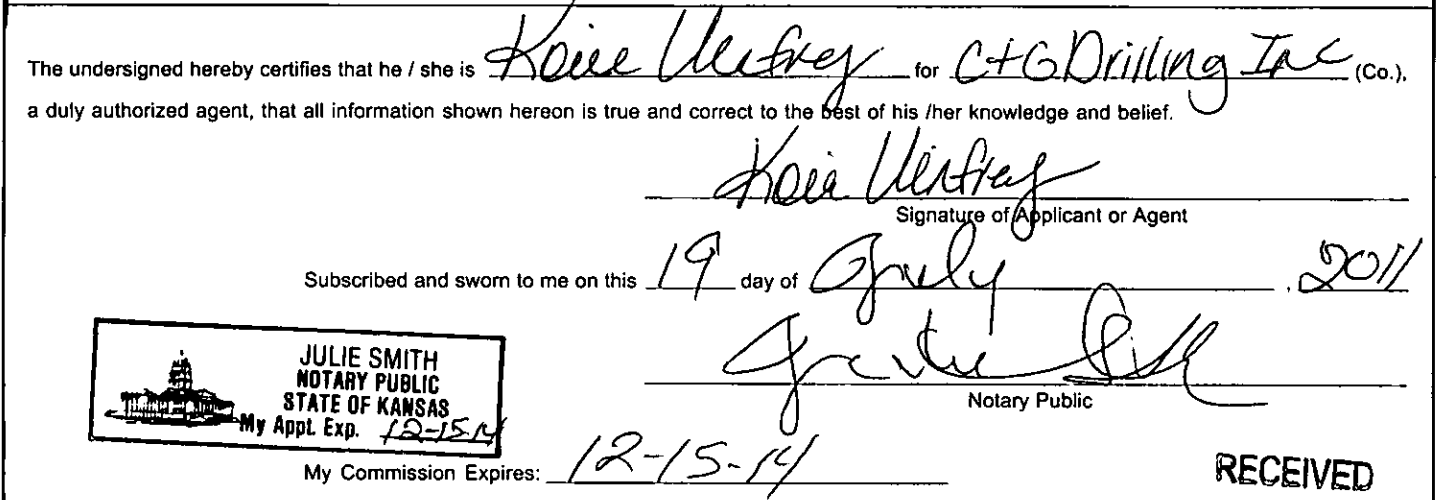 The undersigned hereby certifies that he / she is for C+G Drilling Inc (Co.),
a duly authorized agent, that all information shown hereon is true and correct to the best of his /her knowledge and belief.
Signature of Applicant or Agent
Subscribed and sworn to me on this 19 day of July , 2011
JULIE SMITH
NOTARY PUBLIC
STATE OF KANSAS
My Appt. Exp. 12-15-14
Notary Public
My Commission Expires: 12-15-14
RECEIVED